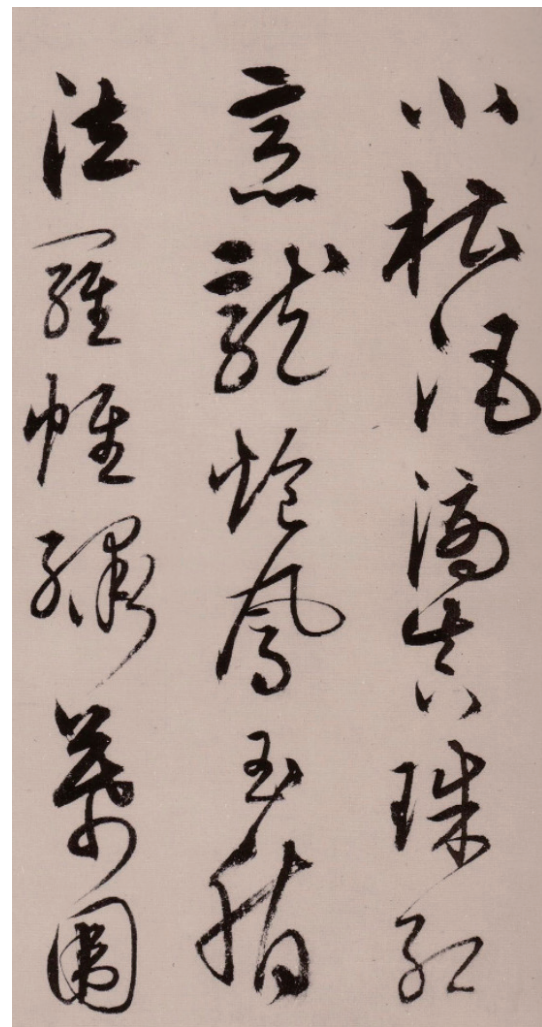 小槽酒滴真珠紅
烹龍炮鳳玉脂
泣羅帷繡幕圍